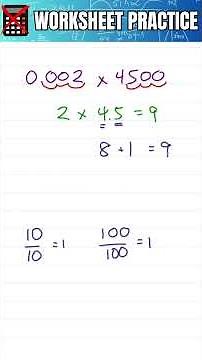 WORKSHEET PRACTICE
0.002 x 4500
2 x 4.5 = 9
8 + 1 = 9
10/10 = 1 100/100 = 1